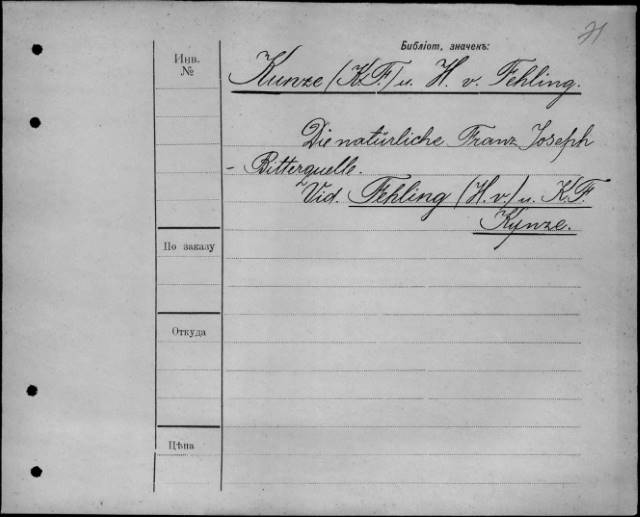 Библіот. значекъ:
Инв.
№
Kunze (K.F.) u. H. v. Fehling.
Die natürliche Franz Joseph
- Bitterquelle.
Vid. Fehling (H. v.) u. K.F.
Kynze.
По заказу
Откуда
Цѣна